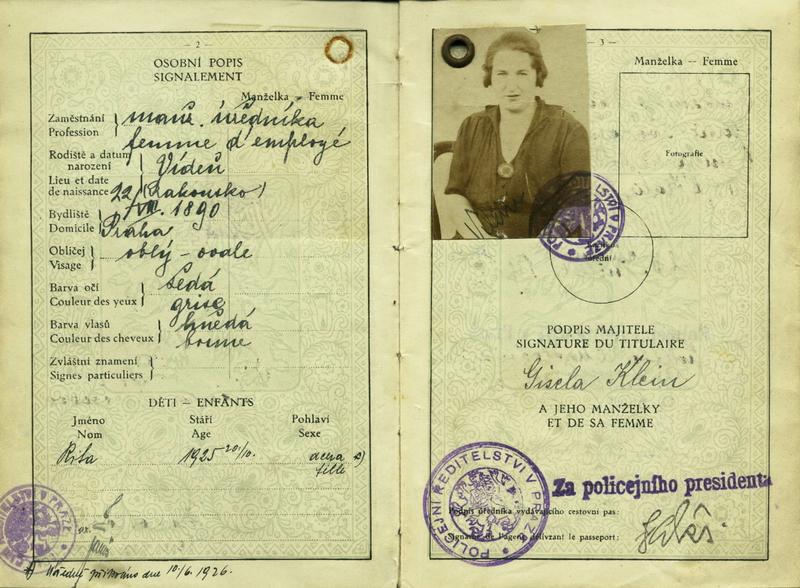 – 2 –
OSOBNÍ POPIS
SIGNALEMENT
Manželka – Femme
Zaměstnání
Profession
manž. úředníka
femme d'employé
Rodiště a datum
narození
Lieu et date
de naissance
Vídeň
(Rakousko)
22/VIII. 1890
Bydliště
Domicile
Praha
Obličej
Visage
oblý – ovale
Barva očí
Couleur des yeux
šedá
grise
Barva vlasů
Couleur des cheveux
hnědá
brune
Zvláštní znamení
Signes particuliers
DĚTI – ENFANTS
Jméno Stáří Pohlaví
Nom Age Sexe
Rita 1925 20/10. dcera
fille
dne 10/6. 1926.
– 3 –
Manželka – Femme
Fotografie
úřední
PODPIS MAJITELE
SIGNATURE DU TITULAIRE
Gisela Klein
A JEHO MANŽELKY
ET DE SA FEMME
POLICEJNÍ ŘEDITELSTVÍ V PRAZE
Za policejního presidenta
Podpis úředníka vydávajícího cestovní pas:
Signature de l'agent délivrant le passeport: